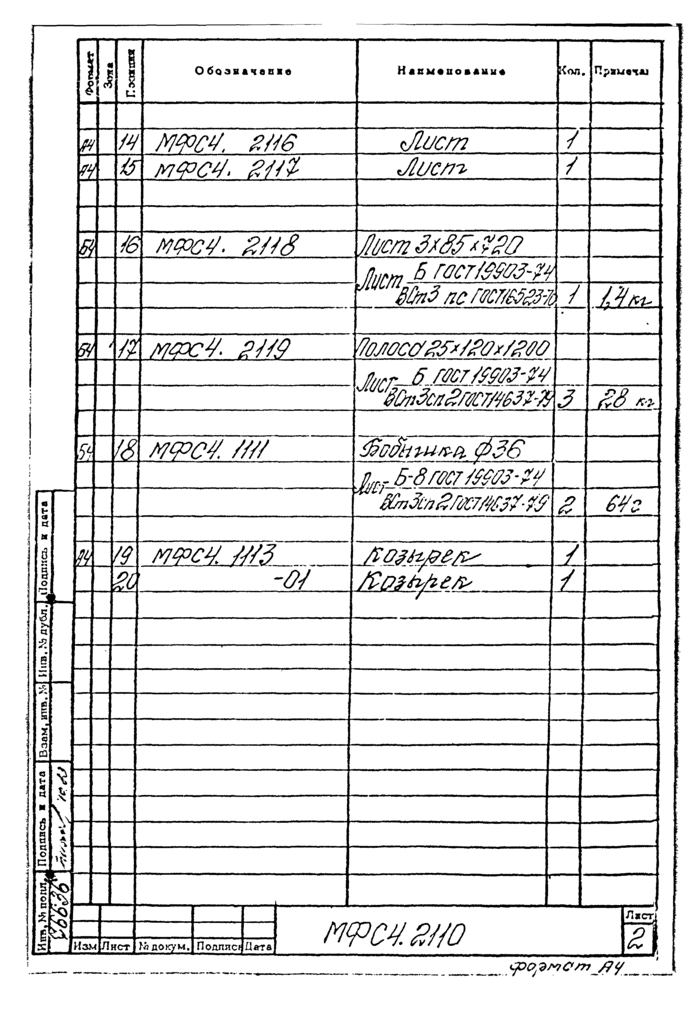 Формат Зона Позиция Обозначение Наименование Кол. Примечан
А4 14 МФС4. 2116 Лист 1
А4 15 МФС4. 2117 Лист 1
Б4 16 МФС4. 2118 Лист 3×85×720
Лист Б ГОСТ 19903-74
ВСт3 пс ГОСТ 16523-70 1 1,4 кг
Б4 17 МФС4. 2119 Полоса 25×120×1200
Лист Б ГОСТ 19903-74
ВСт3сп2 ГОСТ 14637-79 3 28 кг
Б4 18 МФС4. 1111 Бобышка Ф36
Лист Б-8 ГОСТ 19903-74
ВСт3сп2 ГОСТ 14637-79 2 64г
А4 19 МФС4. 1113 Козырек 1
20 -01 Козырек 1
Подпись и дата
Инв. № дубл.
Взам. инв. №
Подпись и дата
Инв. № подл.
Изм Лист № докум. Подпись Дата
МФС4. 2110
Лист
2
формат А4